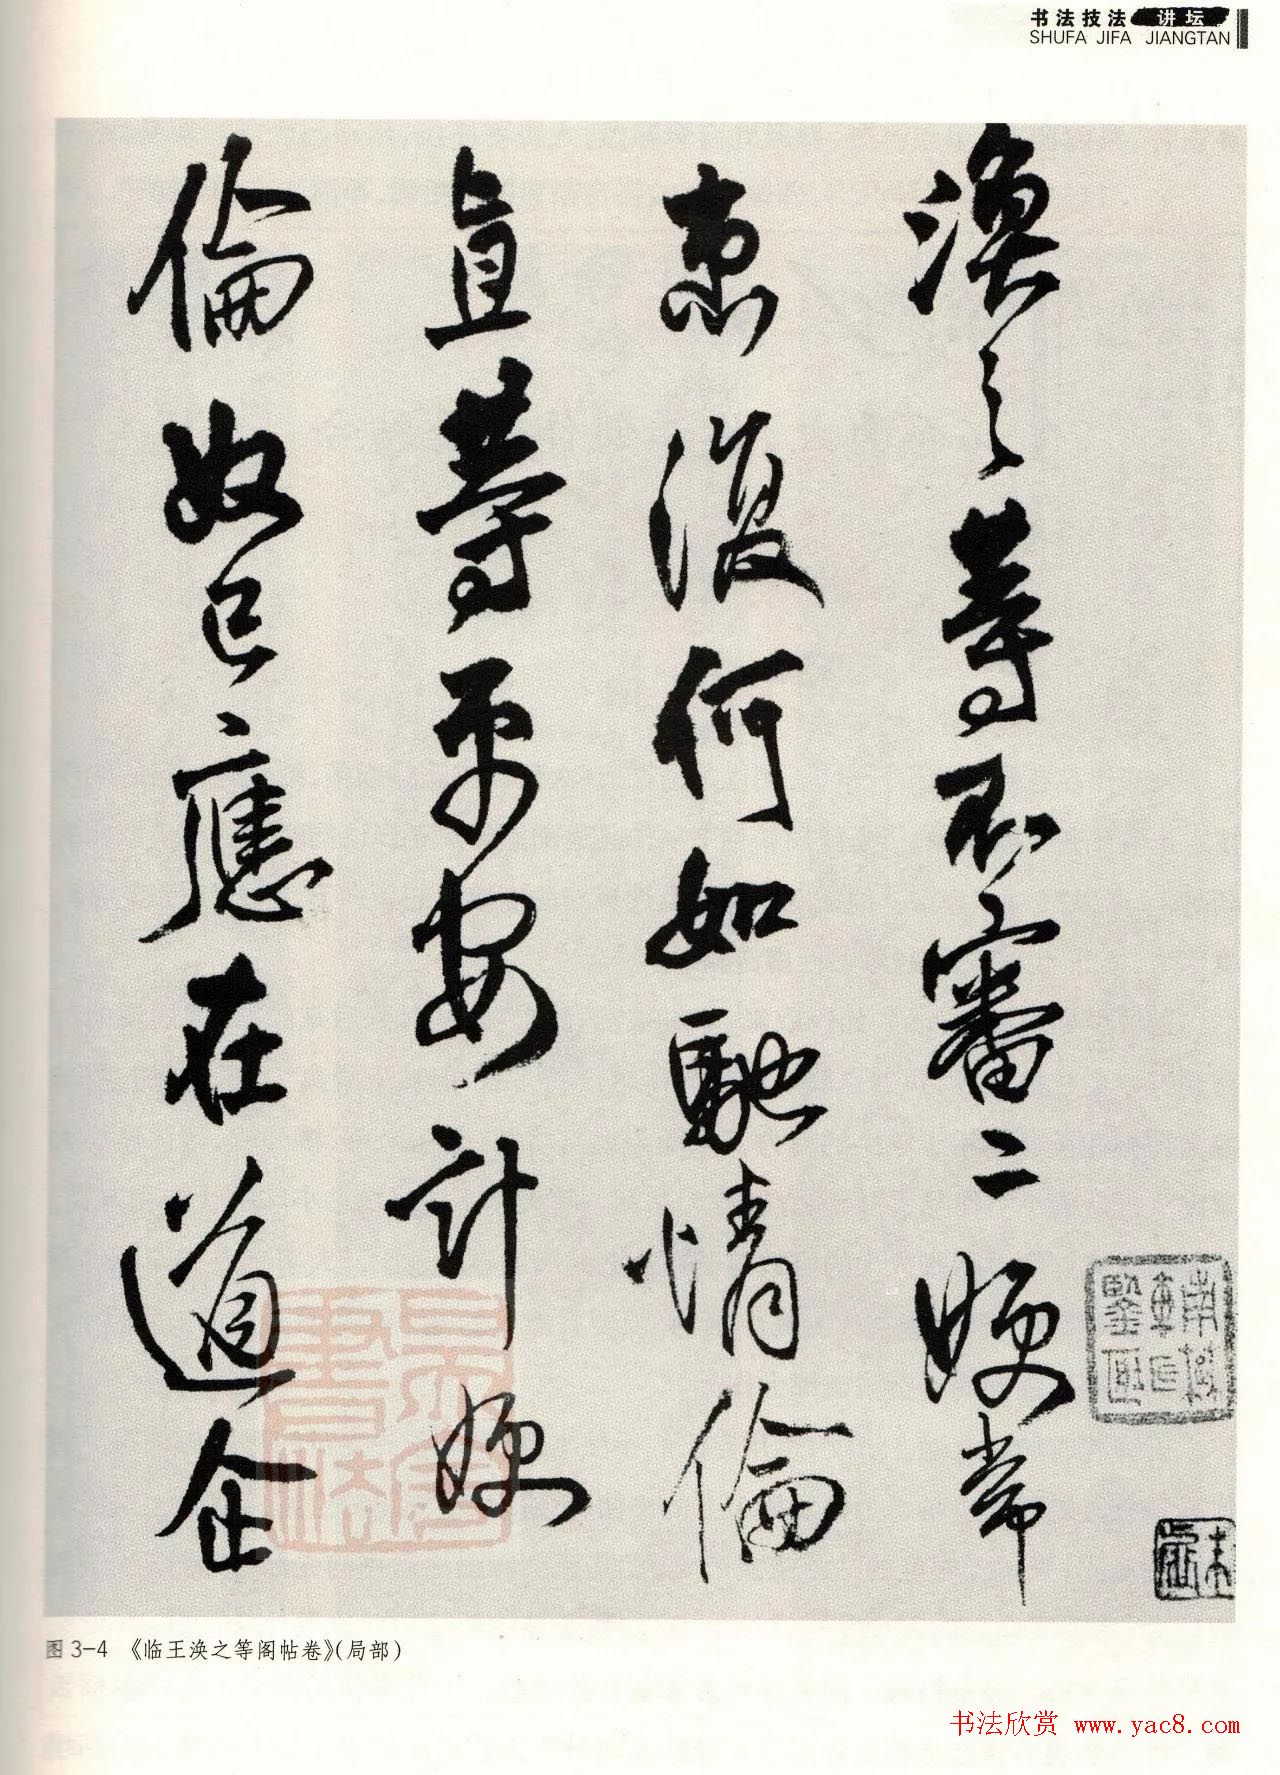 书法技法 讲坛
SHUFA JIFA JIANGTAN
渙之等不審二嫂常
患復何如馳情倫
直等平安計嫂
倫奴已應在道企
图3-4 《临王涣之等阁帖卷》(局部)
书法欣赏 www.yac8.com